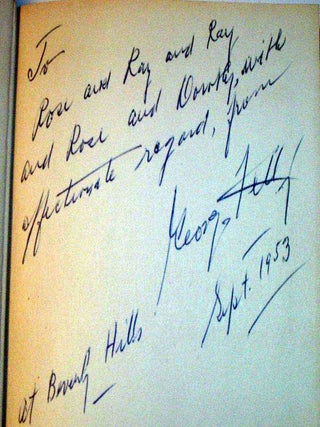 To
Rose and Ray and Ray
and Rose and Dorothy, with
affectionate regard, from
George
Sept. 1953
At Beverly Hills